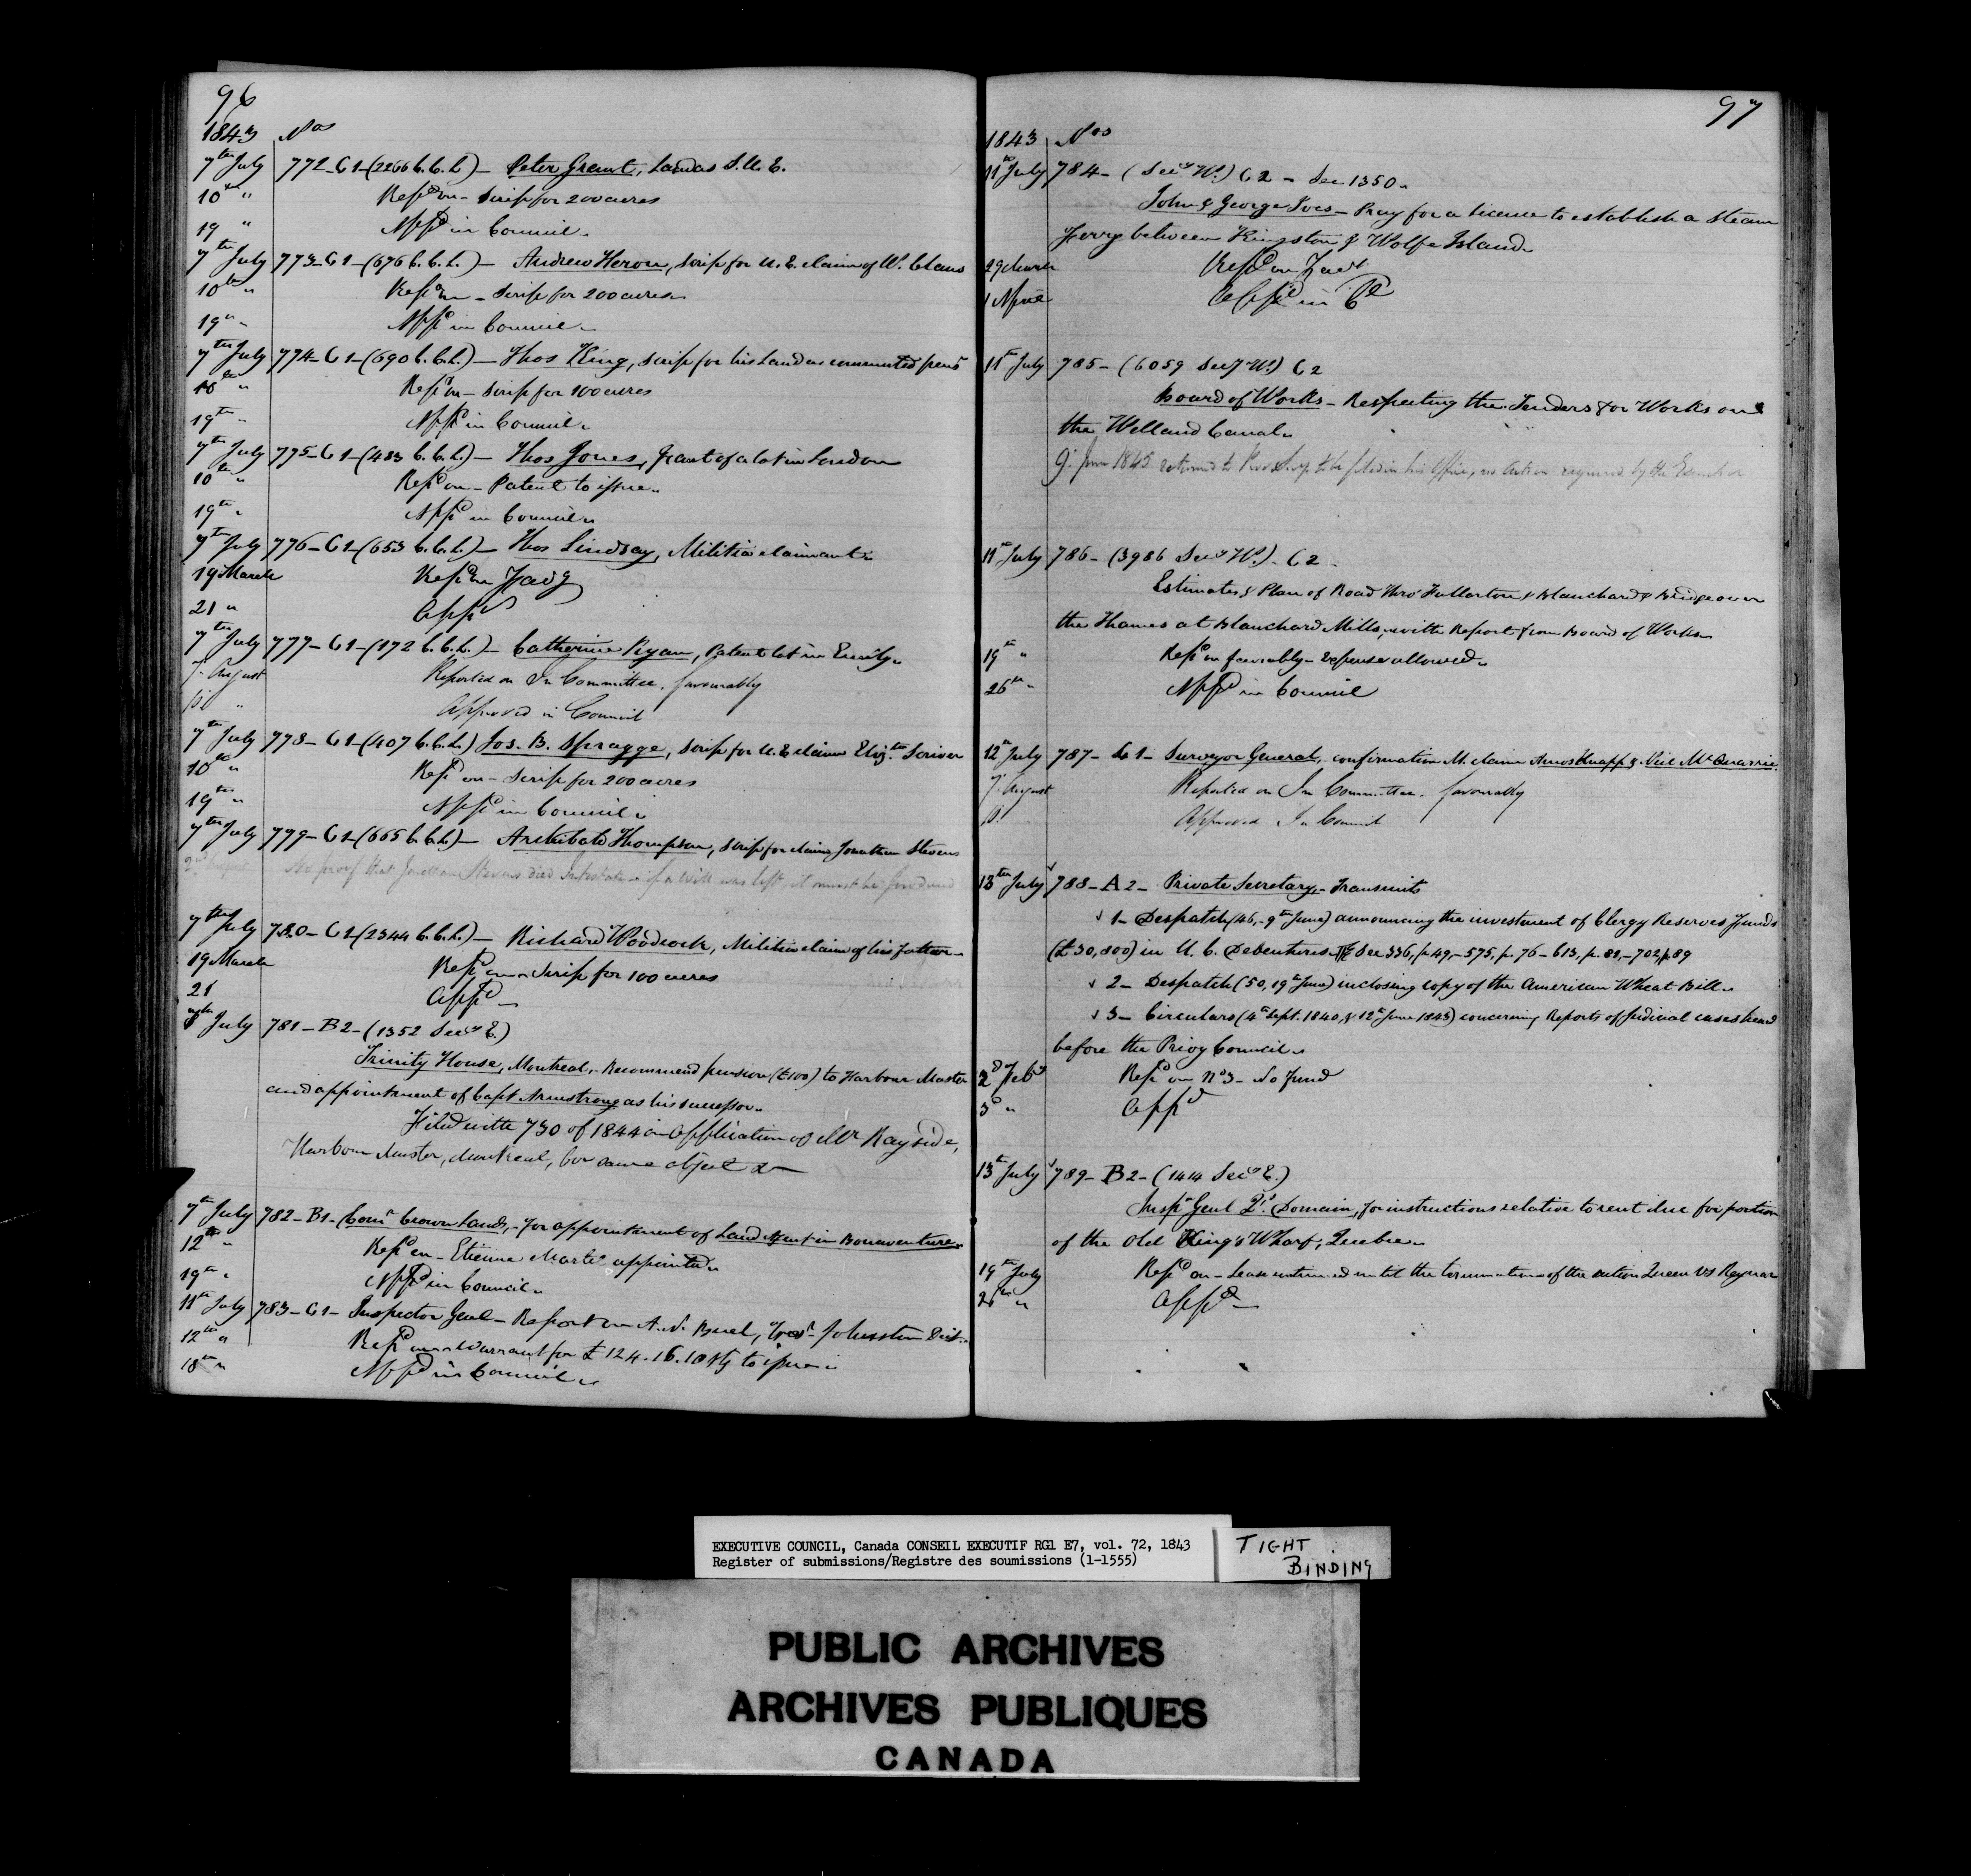 96
1843 Nos
7th July 772-C1-(2266 C.C.L.)- Peter Grant, Land as S.U.E.
10th " Repd on - Scrip for 200 acres
19 " Appd in Council.
7th July 773-C1-(676 C.C.L.)- Andrew Heron, Scrip for U.E. claim of W. Claus
10th " Repd on - Scrip for 200 acres
19th " Appd in Council.
7th July 774-C1-(690 C.C.L.)- Thos King, scrip for his Land as commuted pensr
10th " Repd on - Scrip for 100 acres
19th " Appd in Council.
7th July 775-C1-(483 C.C.L.)- Thos Jones, Grant of a lot in London
10th " Repd on - Patent to issue.
19th " Appd in Council.
7th July 776-C1-(653 C.C.L.)- Thos Lindsay, Militia claimant.
19 March Repd on Favg
21 " Appd
7th July 777-C1-(172 C.C.L.)- Catherine Ryan, Patent lot in Emily.
7. August Reported on In Committee, favourably
" Approved in Council
7th July 778-C1-(407 C.C.L.) Jos. B. Spragge, Scrip for U.E. claim Elizth Scriver
10th " Repd on - Scrip for 200 acres
19th " Appd in Council.
7th July 779-C1-(665 C.C.L.)- Archibald Thompson, Scrip for claim Jonathan Stevens
2nd August No proof that Jonathan Stevens died intestate - if a will was left, it must be produced
7th July 780-C1-(2344 C.C.L.)- Richard Woodcock, Militia claim of his father.
19 March Repd on - Scrip for 100 acres
21 Appd
July 781-B2-(1352 Secy E.)
Trinity House, Montreal,- Recommend pension (£100) to Harbour Master
and appointment of Capt Armstrong as his successor.
Filed with 730 of 1844 on application of Mr Rayside,
Harbour Master, Montreal, for same object
7th July 782-B1- Comr Crown Lands,- for appointment of Land Agent in Bonaventure.
12th " Repd on - Etienne Martel appointed.
19th " Appd in Council.
11th July 783-C1- Inspector Genl - Report on A. N. Buel, Treasr Johnstown Dist.
12th " Repd on - Warrant for £124.16.10 stg to issue.
18th " Appd in Council.
97
1843 Nos
11th July 784- (Secy W.) C2 - See 1350.
John & George Ives - Pray for a license to establish a steam
ferry between Kingston & Wolfe Island.
29 March Repd on Favl
1 April Appd in Cl
11th July 785- (6059 Secy W.) C2
Board of Works - Respecting the Tenders for Works on
the Welland Canal.
9. June 1845 returned to Prov. Secy to be filed in his Office, no action required by the
11th July 786-(3986 Secy W.)- C2-
Estimates & Plan of Road thro' Fullarton & Blanchard & Bridge over
the Thames at Blanchard Mills, with Report from Board of Works.
19th " Repd on favorably - Expense allowed.
26th " Appd in Council
12th July 787- C1- Surveyor General,- confirmation M. claim Amos Knapp & Neil McQuarrie.
7. August Reported on In Committee. favourably
Approved In Council
13th July 788-A2- Private Secretary,- Transmits
1- Despatch (46,- 9th June) announcing the investment of Clergy Reserves Funds
(£30,800) in U.C. Debentures. See 336, p 49,- 575, p. 76-613, p. 82,-702, p 89
2- Despatch (50, 19th June) inclosing copy of the American Wheat Bill.
3- Circulars (4th Sept. 1840, & 12th June 1843) concerning Reports of Judicial cases heard
before the Privy Council.
2d Feby Repd on No 3 - No fund
3d " Appd
13th July 789-B2-(1414 Secy E.)
Inspr Genl Qs. Domain, for instructions relative to rent due for portion
of the Old King's Wharf, Quebec.
19th July Repd on - Lease continued until the termination of the action Queen vs
26th " Appd
EXECUTIVE COUNCIL, Canada CONSEIL EXECUTIF RG1 E7, vol. 72, 1843
Register of submissions/Registre des soumissions (1-1555)
TIGHT
BINDING
PUBLIC ARCHIVES
ARCHIVES PUBLIQUES
CANADA